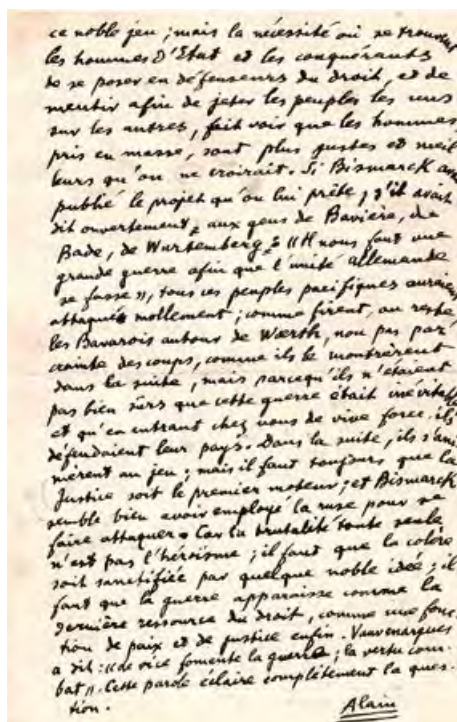 ce noble jeu ; mais la nécessité où se trouvent
les hommes d'Etat et les conquérants
de se poser en défenseurs du droit, et de
mentir afin de jeter les peuples les uns
sur les autres, fait voir que les hommes
pris en masse, sont plus justes et meil
leurs qu'on ne croirait. Si Bismarck
publié le projet qu'on lui prête, s'il avait
dit ouvertement, aux gens de Bavière, de
Bade, de Wurtemberg : « Il nous faut une
grande guerre afin que l'unité allemande
se fasse », tous ces peuples pacifiques
attaqué mollement ; comme firent, au reste
les Bavarois autour de Wœrth, non pas par
crainte des coups, comme ils le montrèrent
dans la suite, mais parcequ'ils n'étaient
pas bien sûrs que cette guerre était
et qu'en entrant chez nous de vive force, ils
défendaient leur pays. Dans la suite, ils s'ani
mèrent au jeu ; mais il faut toujours que la
Justice soit le premier moteur ; et Bismarck
semble bien avoir employé la ruse pour se
faire attaquer. Car la brutalité toute seule
n'est pas l'héroïsme ; il faut que la colère
soit sanctifiée par quelque noble idée ; il
faut que la guerre apparaisse comme la
dernière ressource du droit, comme une fonc
tion de paix et de justice enfin. Vauvenargues
a dit : « le vice fomente la guerre ; la vertu com-
bat ». Cette parole éclaire complètement la ques-
tion.
Alain